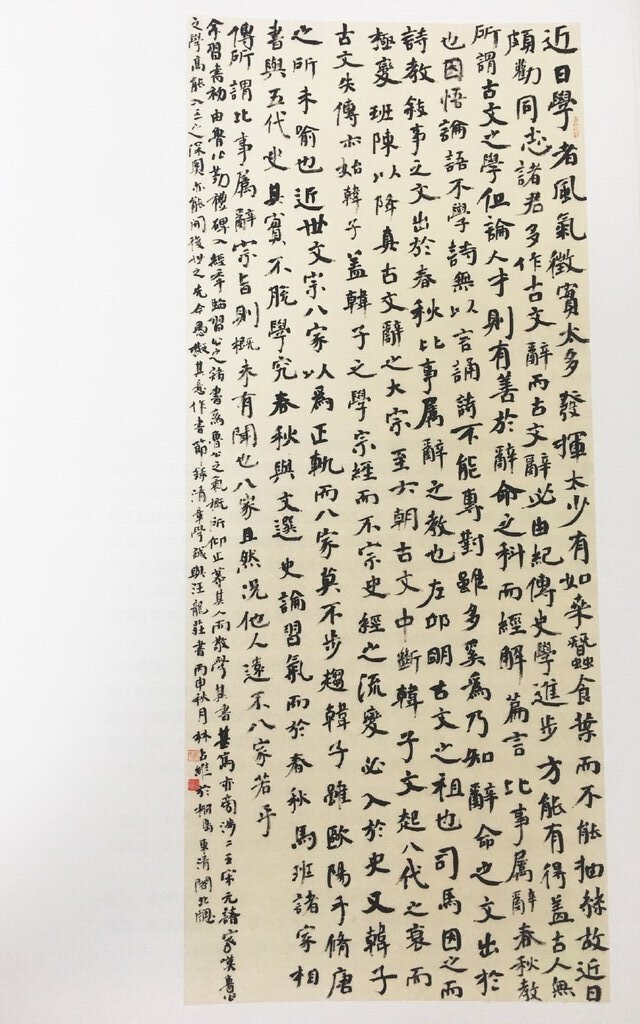 近日學者風氣徵實太多發揮太少有如桑蠶食葉而不能抽絲故近日
頗勸同志諸君多作古文辭而古文辭必由紀傳史學進步方能有得蓋古人無
所謂古文之學但論人才則有善於辭命之科而經解篇言比事属辭春秋教
也因悟論語不學詩無以言誦詩不能專對雖多奚為乃知辭命之文出於
詩教敍事之文出於春秋比事属辭之教也左邱明古文之祖也司馬因之而
極變班陳以降真古文辭之大宗至六朝古文中斷韓子文起八代之衰而
古文失傳亦始韓子蓋韓子之學宗經而不宗史經之流變必入於史又韓子
之所未喻也近世文宗八家以為正軌而八家莫不步趨韓子雖歐陽手脩唐
書與五代史其實不脫學究春秋與文選史論習氣而於春秋馬班諸家相
傳所謂比事属辭宗旨則概未有聞也八家且然況他人遠不八家若乎
余習書初由魯公勤禮碑入經年臨習公之諸書為魯公之氣概所仰止慕其人而敬學其書甚篤亦嘗涉二王宋元諸家嘆魯公
之學焉能入三之深奧亦能開後世之先今為擬其意作書節錄清章學誠與汪龍莊書丙申秋月林占維於桐鳥車清閣北牕